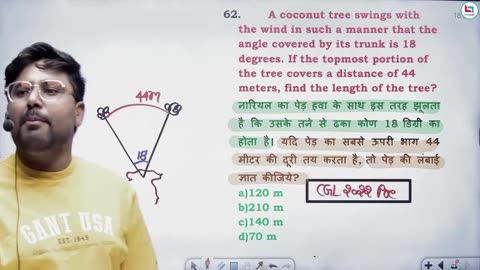 62. A coconut tree swings with
the wind in such a manner that the
angle covered by its trunk is 18
degrees. If the topmost portion of
the tree covers a distance of 44
meters, find the length of the tree?
नारियल का पेड़ हवा के साथ इस तरह झूलता
है कि उसके तने से ढका कोण 18 डिग्री का
होता है। यदि पेड़ का सबसे ऊपरी भाग 44
मीटर की दूरी तय करता है, तो पेड़ की लंबाई
ज्ञात कीजिये?
a)120 m
b)210 m
c)140 m
d)70 m
CGL 2022 Pre
44m
18
GANT USA
EST. IN 1949